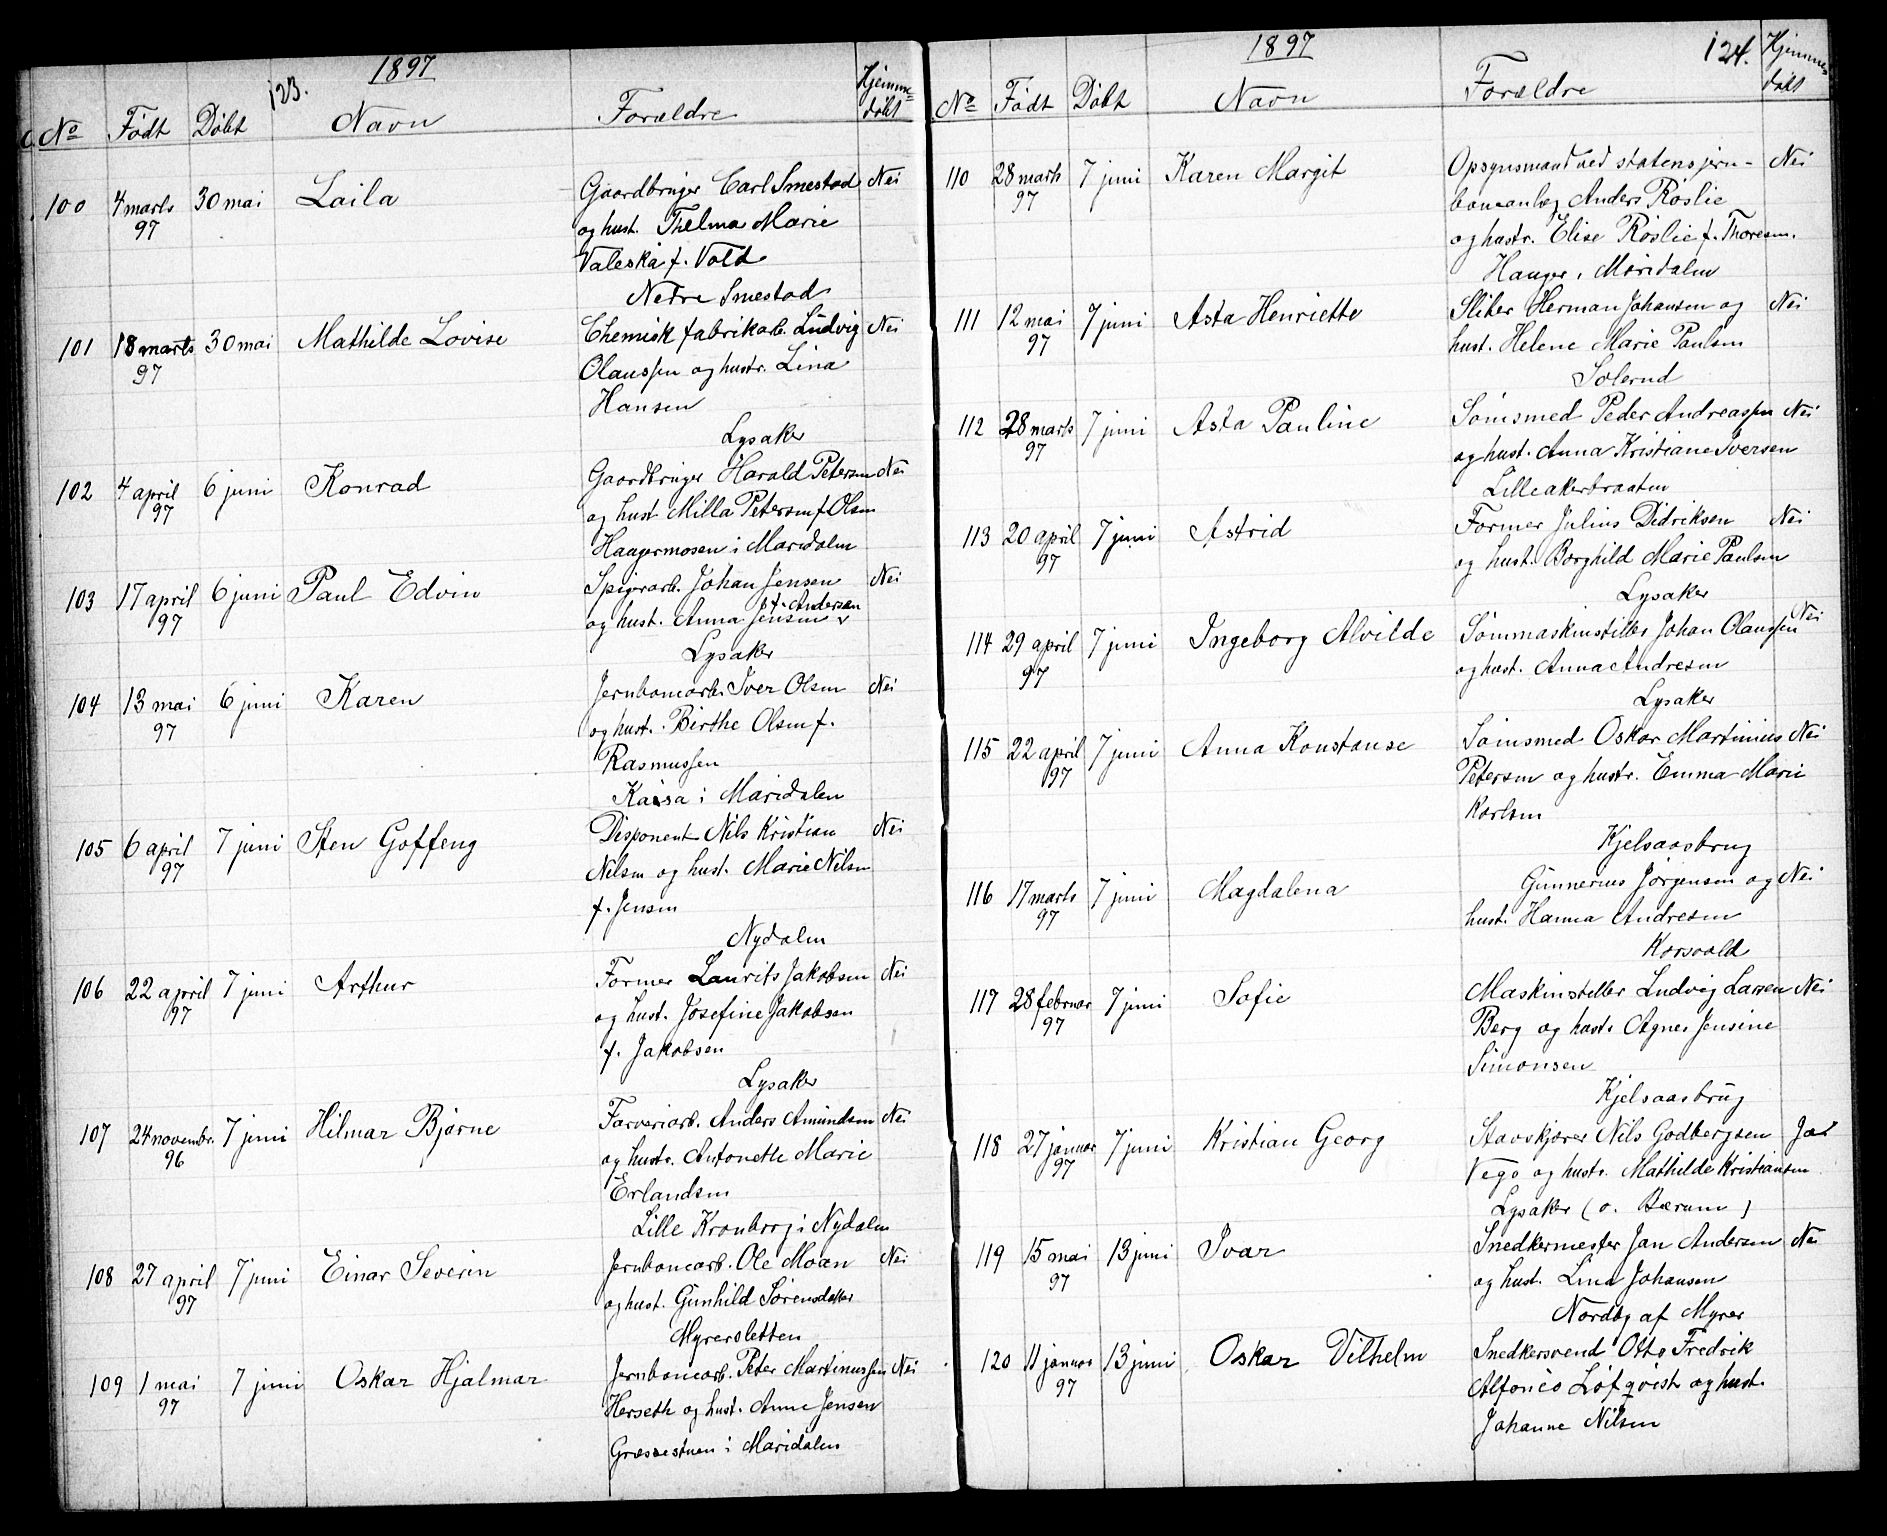 1897
123.
No Født Døbt Navn Forældre Hjemme-
døbt
100 4 marts 30 mai Laila Gaardbruger Carl Smestad Nei
97 og hust. Thelma Marie
Valeska f. Vold
Nedre Smestad
101 18 marts 30 mai Mathilde Lovise Chemisk fabrikarb. Ludvig Nei
97 Olaussen og hustr. Lina
Hansen
Lysaker
102 4 april 6 juni Konrad Gaardbruger Harald Petersen Nei
97 og hust Milla Petersen f Olsen
Haugermosen i Maridalen
103 17 april 6 juni Paul Edvin Spigerarb. Johan Jensen Nei
97 og hust. Anna Jensen f. Andersen
Lysaker
104 13 mai 6 juni Karen Jernbanearb. Iver Olsen Nei
97 og hust. Birthe Olsen f.
Rasmussen
Kaisa i Maridalen
105 6 april 7 juni Sten Goffeng Disponent Nils Kristian Nei
97 Nilsen og hust. Marie Nilsen
f. Jensen
Nydalen
106 22 april 7 juni Arthur Former Laurits Jakobsen Nei
97 og hust. Josefine Jakobsen
f. Jakobsen
Lysaker
107 24 novembr. 7 juni Hilmar Bjarne Farveriarb. Anders Amundsen Nei
96 og hustr. Antonette Marie
Erlandsen
Lille Kronborg i Nydalen
108 27 april 7 juni Einar Severin Jernbanearb. Ole Moan Nei
97 og hust. Gunhild Sørensdatter
Myrersletten
109 1 mai 7 juni Oskar Hjalmar Jernbanearb. Peter Martinussen Nei
97 Herseth og hust. Anne Jensen
Græssestuen i Maridalen
1897
124.
No Født Døbt Navn Forældre Hjemme-
døbt
110 28 marts 7 juni Karen Margit Opsynsmand ved statens jern- Nei
97 baneanlæg Anders Røslie
og hustr. Elise Røslie f. Thoresen.
Hauger i Maridalen
111 12 mai 7 juni Asta Henriette Sliber Herman Johansen og Nei
97 hust. Helene Marie Paulsen
Solerud
112 28 marts 7 juni Asta Pauline Sømsmed Peder Andreassen Nei
97 og hust. Anna Kristiane Iversen
Lilleakerbraaten
113 20 april 7 juni Astrid Former Julius Didriksen Nei
97 og hust. Borghild Marie Paulsen
Lysaker
114 29 april 7 juni Ingeborg Alvilde Sømmaskinstiller Johan Olaussen Nei
97 og hust. Anna Andresen
Lysaker
115 22 april 7 juni Anna Konstanse Sømsmed Oskar Martinius Nei
97 Petersen og hustr. Emma Marie
Karlsen
Kjelsaasbrug
116 17 marts 7 juni Magdalena Gunnerius Jørgensen og Nei
97 hust. Hanna Andresen
Korsvold
117 28 februar 7 juni Sofie Maskinsteller Ludvig Larsen Nei
97 Berg og hustr Agnes Jensine
Simonsen
Kjelsaasbrug
118 27 januar 7 juni Kristian Georg Stavskjører Nils Godbergsen Ja
97 Vego og hustr. Mathilde Kristiansen
Lysaker (o. Bærum)
119 15 mai 13 juni Ivar Snedkermester Jan Andersen Nei
97 og hust. Lina Johansen
Nordby af Myrer
120 11 januar 13 juni Oskar Vilhelm Snedkersvend Otto Fredrik
97 Alfonso Löfqvist og hust.
Johanne Nilsen